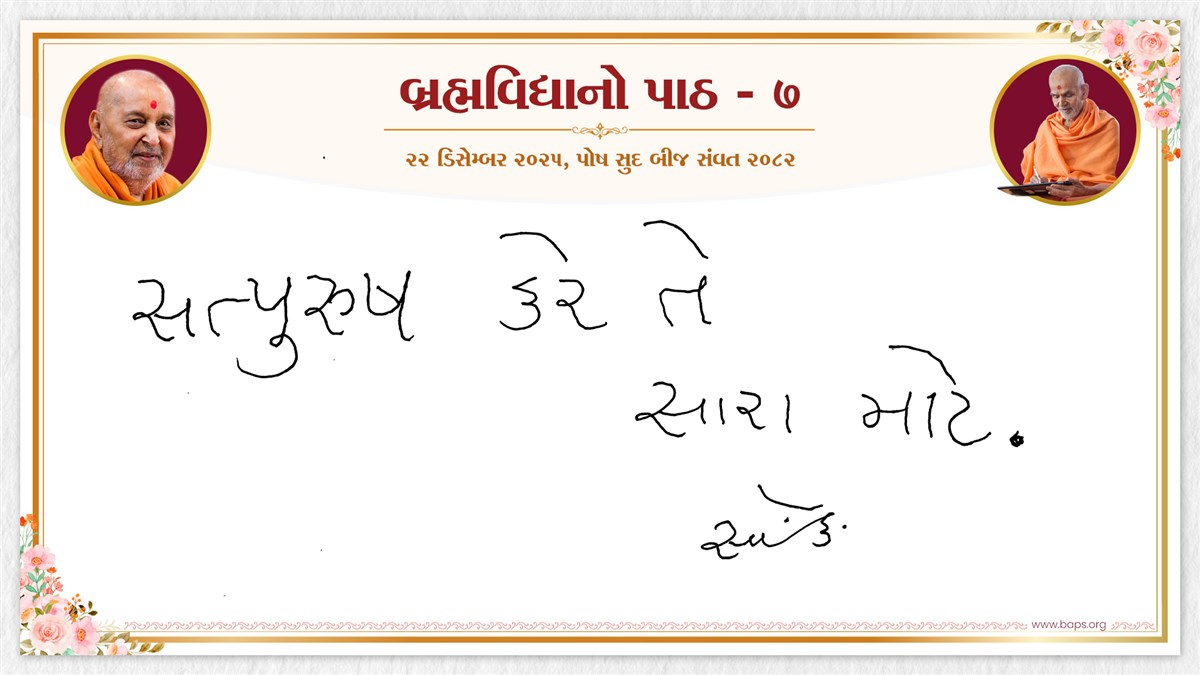 બ્રહ્મવિદ્યાનો પાઠ - ૭
૨૨ ડિસેમ્બર ૨૦૨૫, પોષ સુદ બીજ સંવત ૨૦૮૨
સત્પુરુષ કરે તે
સારા માટે.
www.baps.org